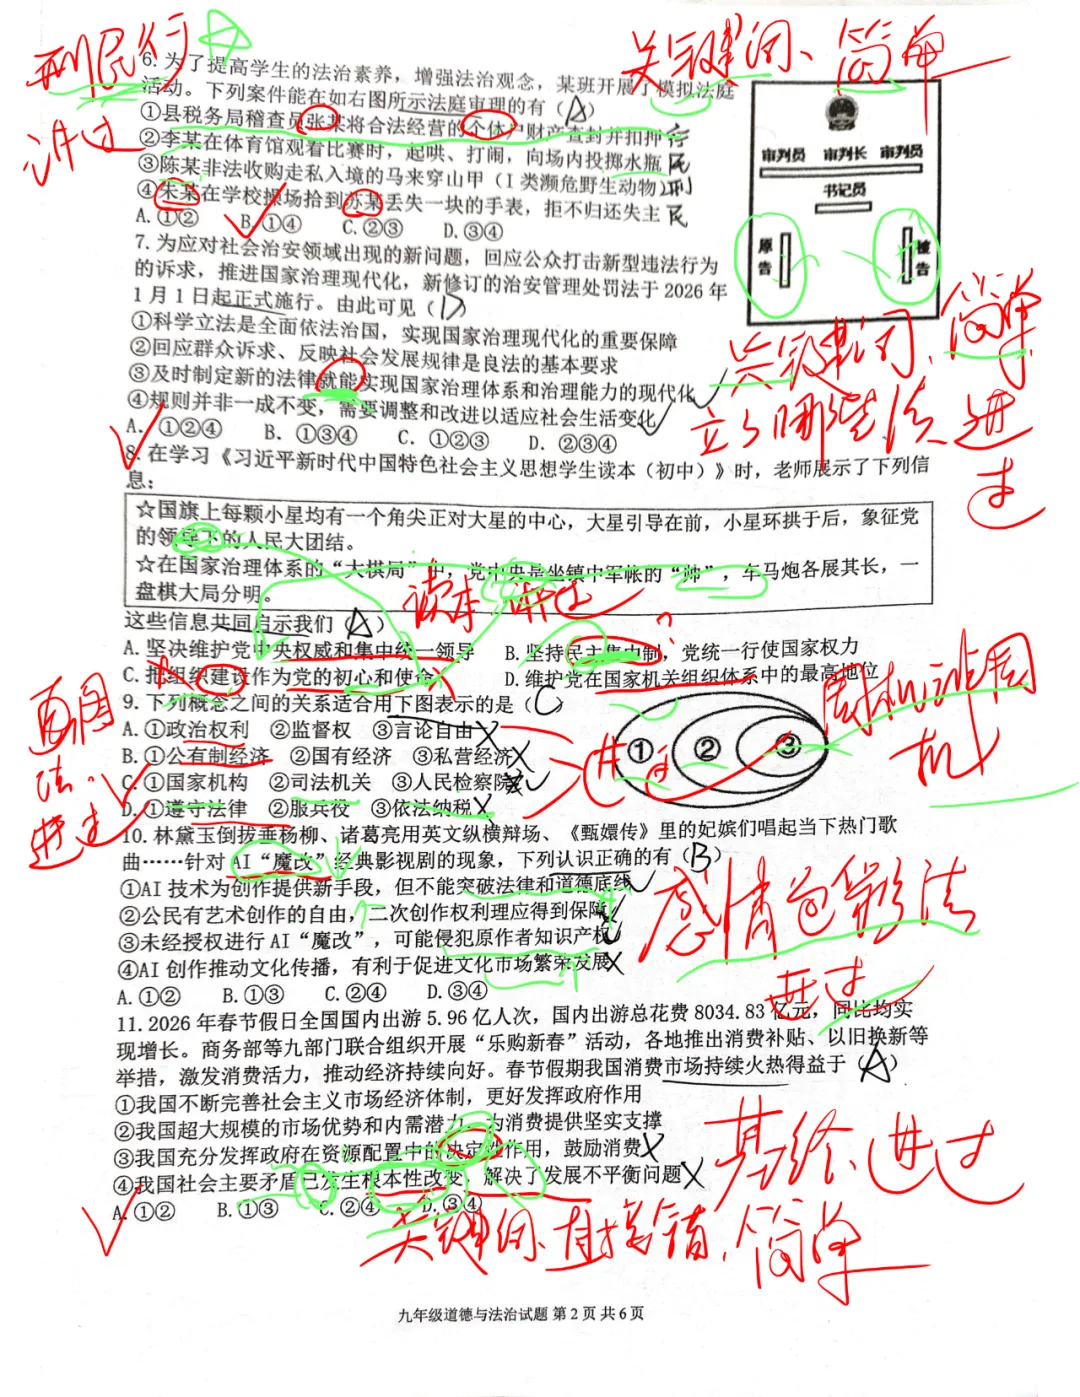 刑民行
讲过
关键词、简单
6. 为了提高学生的法治素养，增强法治观念，某班开展了模拟法庭
活动。下列案件能在如右图所示法庭审理的有（A）
①县税务局稽查员张某将合法经营的个体户财产查封并扣押 行
②李某在体育馆观看比赛时，起哄、打闹，向场内投掷水瓶 民
③陈某非法收购走私入境的马来穿山甲（I 类濒危野生动物）刑
④朱某在学校操场拾到苏某丢失一块的手表，拒不归还失主 民
A. ①② B. ①④ C. ②③ D. ③④
审判员 审判长 审判员
书记员
原告
被告
7. 为应对社会治安领域出现的新问题，回应公众打击新型违法行为
的诉求，推进国家治理现代化，新修订的治安管理处罚法于 2026 年
1 月 1 日起正式施行。由此可见（D）
①科学立法是全面依法治国，实现国家治理现代化的重要保障
②回应群众诉求、反映社会发展规律是良法的基本要求
③及时制定新的法律就能实现国家治理体系和治理能力的现代化
④规则并非一成不变，需要调整和改进以适应社会生活变化
A. ①②④ B. ①③④ C. ①②③ D. ②③④
关键词、简单
立了哪些法 进过
8. 在学习《习近平新时代中国特色社会主义思想学生读本（初中）》时，老师展示了下列信
息：
☆国旗上每颗小星均有一个角尖正对大星的中心，大星引导在前，小星环拱于后，象征党
的领导下的人民大团结。
☆在国家治理体系的“大棋局”中，党中央是坐镇中军帐的“帅”，车马炮各展其长，一
盘棋大局分明。
读本 讲过
这些信息共同启示我们（A）
A. 坚决维护党中央权威和集中统一领导 B. 坚持民主集中制，党统一行使国家权力
C. 把组织建设作为党的初心和使命 D. 维护党在国家机关组织体系中的最高地位
画图法。进过
9. 下列概念之间的关系适合用下图表示的是（C）
A. ①政治权利 ②监督权 ③言论自由
B. ①公有制经济 ②国有经济 ③私营经济
C. ①国家机构 ②司法机关 ③人民检察院
D. ①遵守法律 ②服兵役 ③依法纳税
① ② ③
10. 林黛玉倒拔垂杨柳、诸葛亮用英文纵横辩场、《甄嬛传》里的妃嫔们唱起当下热门歌
曲……针对 AI“魔改”经典影视剧的现象，下列认识正确的有（B）
①AI 技术为创作提供新手段，但不能突破法律和道德底线
②公民有艺术创作的自由，二次创作权利理应得到保障
③未经授权进行 AI“魔改”，可能侵犯原作者知识产权
④AI 创作推动文化传播，有利于促进文化市场繁荣发展
A. ①② B. ①③ C. ②④ D. ③④
11. 2026 年春节假日全国国内出游 5.96 亿人次，国内出游总花费 8034.83 亿元，同比均实
现增长。商务部等九部门联合组织开展“乐购新春”活动，各地推出消费补贴、以旧换新等
举措，激发消费活力，推动经济持续向好。春节假期我国消费市场持续火热得益于（A）
①我国不断完善社会主义市场经济体制，更好发挥政府作用
②我国超大规模的市场优势和内需潜力，为消费提供坚实支撑
③我国充分发挥政府在资源配置中的决定性作用，鼓励消费
④我国社会主要矛盾已发生根本性改变，解决了发展不平衡问题
A. ①② B. ①③ C. ②④ D. ③④
关键词、直接答错、简单
九年级道德与法治试题 第 2 页 共 6 页